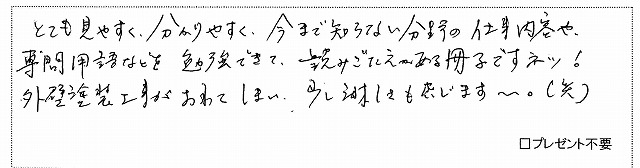 とても見やすく、分かりやすく、今まで知らない分野の仕事内容や、
専門用語などを勉強できて、読みごたえがある冊子ですネッ!
外壁塗装工事がおわてしまい、少し淋しさも感じます〜。(笑)
□プレゼント不要